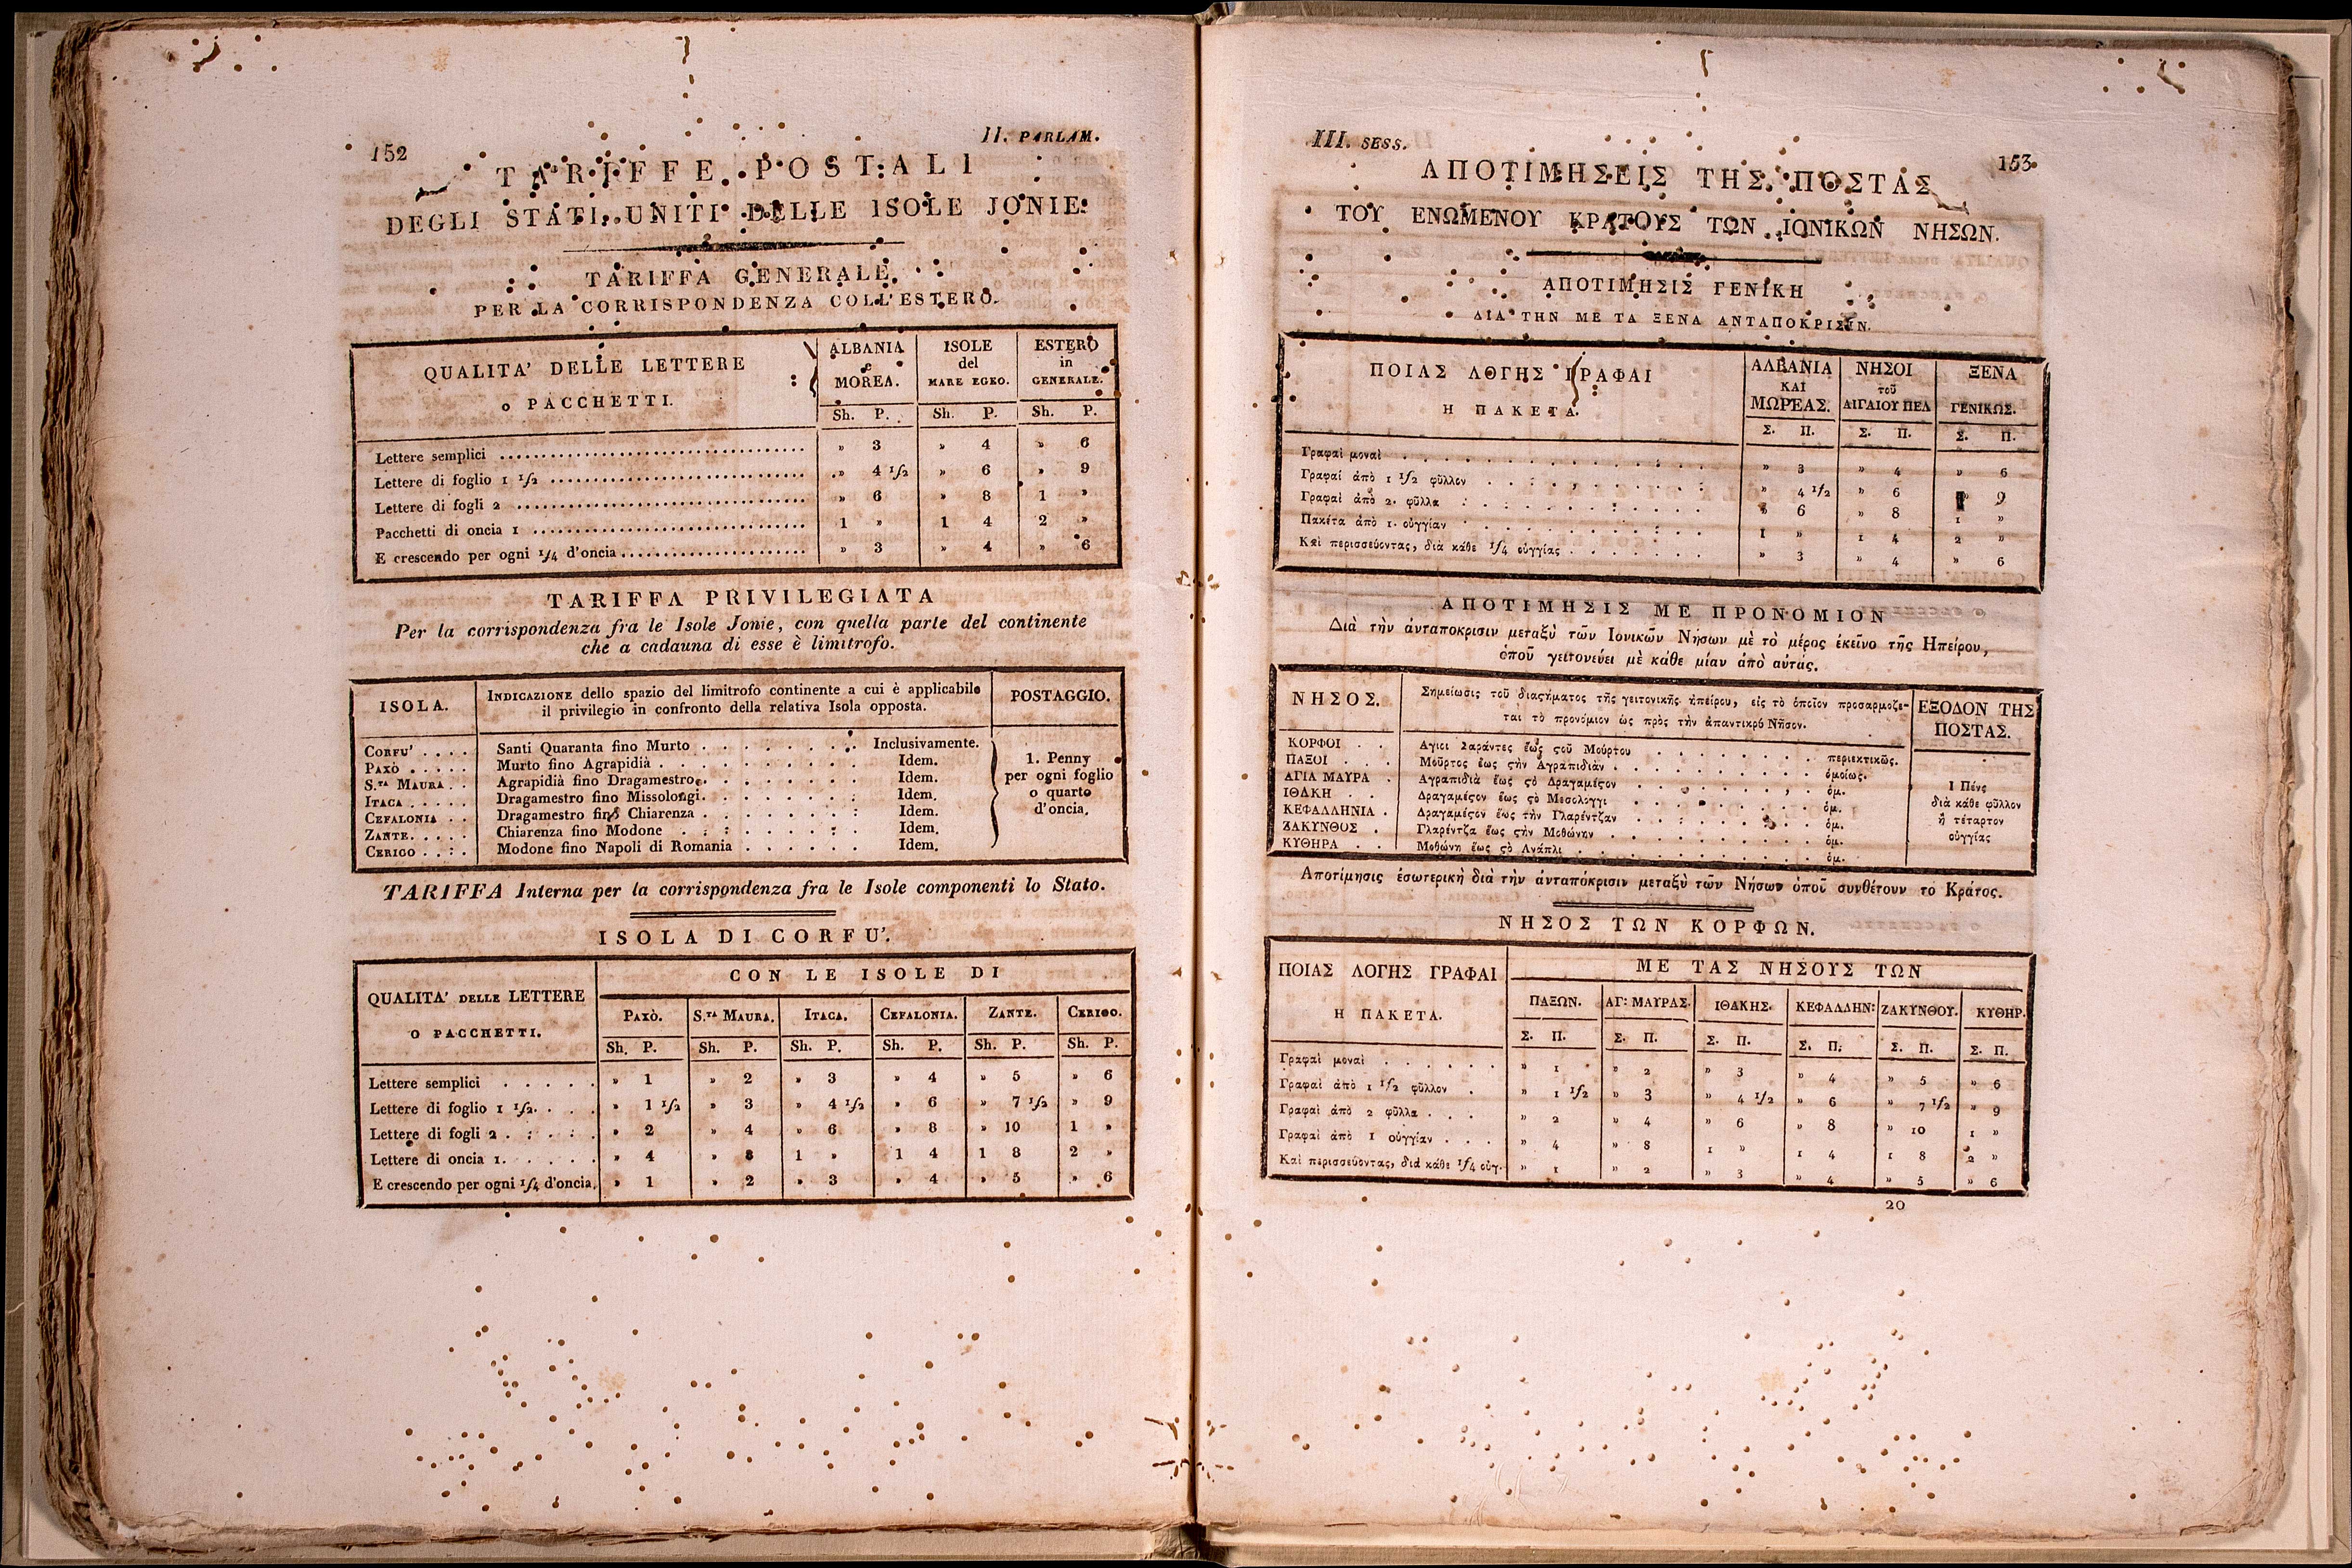 152
II. PARLAM.
TARIFFE POSTALI
DEGLI STATI UNITI DELLE ISOLE JONIE.
TARIFFA GENERALE
PER LA CORRISPONDENZA COLL'ESTERO.
QUALITA' DELLE LETTERE o PACCHETTI. ALBANIA e MOREA. ISOLE del MARE EGEO. ESTERO in GENERALE.
Sh. P. Sh. P. Sh. P.
Lettere semplici » 3 » 4 » 6
Lettere di foglio 1 1/2 » 4 1/2 » 6 » 9
Lettere di fogli 2 » 6 » 8 1 »
Pacchetti di oncia 1 1 » 1 4 2 »
E crescendo per ogni 1/4 d'oncia » 3 » 4 » 6
TARIFFA PRIVILEGIATA
Per la corrispondenza fra le Isole Jonie, con quella parte del continente
che a cadauna di esse è limitrofo.
ISOLA. INDICAZIONE dello spazio del limitrofo continente a cui è applicabile POSTAGGIO.
il privilegio in confronto della relativa Isola opposta.
CORFU' Santi Quaranta fino Murto Inclusivamente.
PAXÒ Murto fino Agrapidià Idem. 1. Penny
S.TA MAURA Agrapidià fino Dragamestro Idem. per ogni foglio
ITACA Dragamestro fino Missolongi Idem. o quarto
CEFALONIA Dragamestro fino Chiarenza Idem. d'oncia.
ZANTE Chiarenza fino Modone Idem.
CERIGO Modone fino Napoli di Romania Idem.
TARIFFA Interna per la corrispondenza fra le Isole componenti lo Stato.
ISOLA DI CORFU'.
QUALITA' DELLE LETTERE O PACCHETTI. CON LE ISOLE DI
PAXÒ. S.TA MAURA. ITACA. CEFALONIA. ZANTE. CERIGO.
Sh. P. Sh. P. Sh. P. Sh. P. Sh. P. Sh. P.
Lettere semplici » 1 » 2 » 3 » 4 » 5 » 6
Lettere di foglio 1 1/2. » 1 1/2 » 3 » 4 1/2 » 6 » 7 1/2 » 9
Lettere di fogli 2 » 2 » 4 » 6 » 8 » 10 1 »
Lettere di oncia 1. » 4 » 8 1 » 1 4 1 8 2 »
E crescendo per ogni 1/4 d'oncia. » 1 » 2 » 3 » 4 » 5 » 6
III. SESS.
153
ΑΠΟΤΙΜΗΣΕΙΣ ΤΗΣ ΠΟΣΤΑΣ
ΤΟΥ ΕΝΩΜΕΝΟΥ ΚΡΑΤΟΥΣ ΤΩΝ ΙΟΝΙΚΩΝ ΝΗΣΩΝ.
ΑΠΟΤΙΜΗΣΙΣ ΓΕΝΙΚΗ
ΔΙΑ ΤΗΝ ΜΕ ΤΑ ΞΕΝΑ ΑΝΤΑΠΟΚΡΙΣΙΝ.
ΠΟΙΑΣ ΛΟΓΗΣ ΓΡΑΦΑΙ Η ΠΑΚΕΤΑ. ΑΛΒΑΝΙΑ ΚΑΙ ΜΩΡΕΑΣ. ΝΗΣΟΙ τοῦ ΑΙΓΑΙΟΥ ΠΕΛ ΞΕΝΑ ΓΕΝΙΚΩΣ.
Σ. Π. Σ. Π. Σ. Π.
Γραφαὶ μοναὶ » 3 » 4 » 6
Γραφαὶ ἀπὸ 1 1/2 φῦλλον » 4 1/2 » 6 » 9
Γραφαὶ ἀπὸ 2. φῦλλα » 6 » 8 1 »
Πακέτα ἀπὸ 1. οὐγγίαν 1 » 1 4 2 »
Καὶ περισσεύοντας, διὰ κάθε 1/4 οὐγγίας » 3 » 4 » 6
ΑΠΟΤΙΜΗΣΙΣ ΜΕ ΠΡΟΝΟΜΙΟΝ
Διὰ τὴν ἀνταποκρισιν μεταξὺ τῶν Ιονικῶν Νήσων μὲ τὸ μέρος ἐκεῖνο τῆς Ηπείρου,
ὁποῦ γειτονεύει μὲ κάθε μίαν ἀπὸ αὐτάς.
ΝΗΣΟΣ. Σημείωσις τοῦ διαςήματος τῆς γειτονικῆς ἠπείρου, εἰς τὸ ὁποῖον προσαρμοζε- ΕΞΟΔΟΝ ΤΗΣ
ται τὸ προνόμιον ὡς πρὸς τὴν ἀπαντικρὺ Νῆσον. ΠΟΣΤΑΣ.
ΚΟΡΦΟΙ Αγιοι Σαράντες ἕως ςοῦ Μούρτου περιεκτικῶς.
ΠΑΞΟΙ Μοῦρτος ἕως ςὴν Αγραπιδιὰν ὁμοίως.
ΑΓΙΑ ΜΑΥΡΑ Αγραπιδιὰ ἕως ςὸ Δραγαμέςον ὁμ. 1 Πένς
ΙΘΑΚΗ Δραγαμέςον ἕως ςὸ Μεσολογγι ὁμ. διὰ κάθε φῦλλον
ΚΕΦΑΛΛΗΝΙΑ Δραγαμέςον ἕως τὴν Γλαρέντζαν ὁμ. ἢ τέταρτον
ΖΑΚΥΝΘΟΣ Γλαρέντζα ἕως ςὴν Μοθώνην ὁμ. οὐγγίας
ΚΥΘΗΡΑ Μοθώνη ἕως ςὸ Ανάπλι ὁμ.
Αποτίμησις ἐσωτερικὴ διὰ τὴν ἀνταπόκρισιν μεταξὺ τῶν Νήσων ὁποῦ συνθέτουν τὸ Κράτος.
ΝΗΣΟΣ ΤΩΝ ΚΟΡΦΩΝ.
ΠΟΙΑΣ ΛΟΓΗΣ ΓΡΑΦΑΙ Η ΠΑΚΕΤΑ. ΜΕ ΤΑΣ ΝΗΣΟΥΣ ΤΩΝ
ΠΑΞΩΝ. ΑΓ: ΜΑΥΡΑΣ. ΙΘΑΚΗΣ. ΚΕΦΑΛΛΗΝ: ΖΑΚΥΝΘΟΥ. ΚΥΘΗΡ.
Σ. Π. Σ. Π. Σ. Π. Σ. Π. Σ. Π. Σ. Π.
Γραφαὶ μοναὶ » 1 » 2 » 3 » 4 » 5 » 6
Γραφαὶ ἀπὸ 1 1/2 φῦλλον » 1 1/2 » 3 » 4 1/2 » 6 » 7 1/2 » 9
Γραφαὶ ἀπὸ 2 φῦλλα » 2 » 4 » 6 » 8 » 10 1 »
Γραφαὶ ἀπὸ 1 οὐγγίαν » 4 » 8 1 » 1 4 1 8 2 »
Καὶ περισσεύοντας, διὰ κάθε 1/4 οὐγ. » 1 » 2 » 3 » 4 » 5 » 6
20